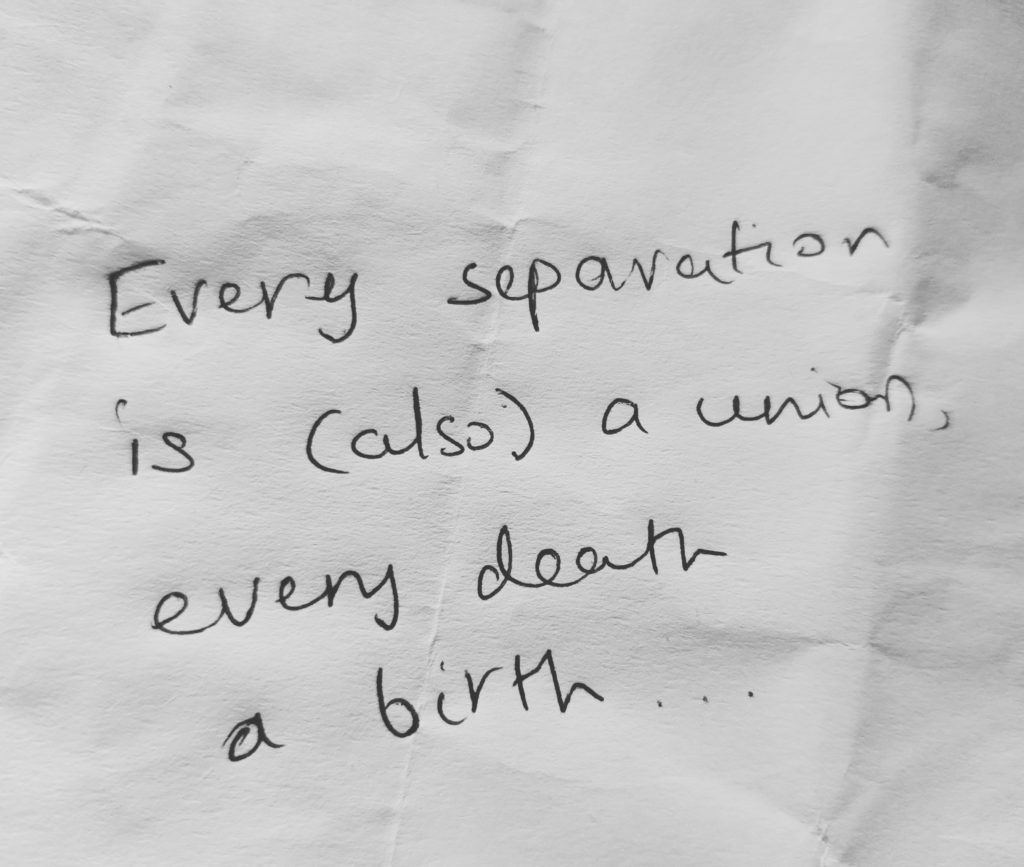 Every separation
is (also) a union,
every death
a birth ...